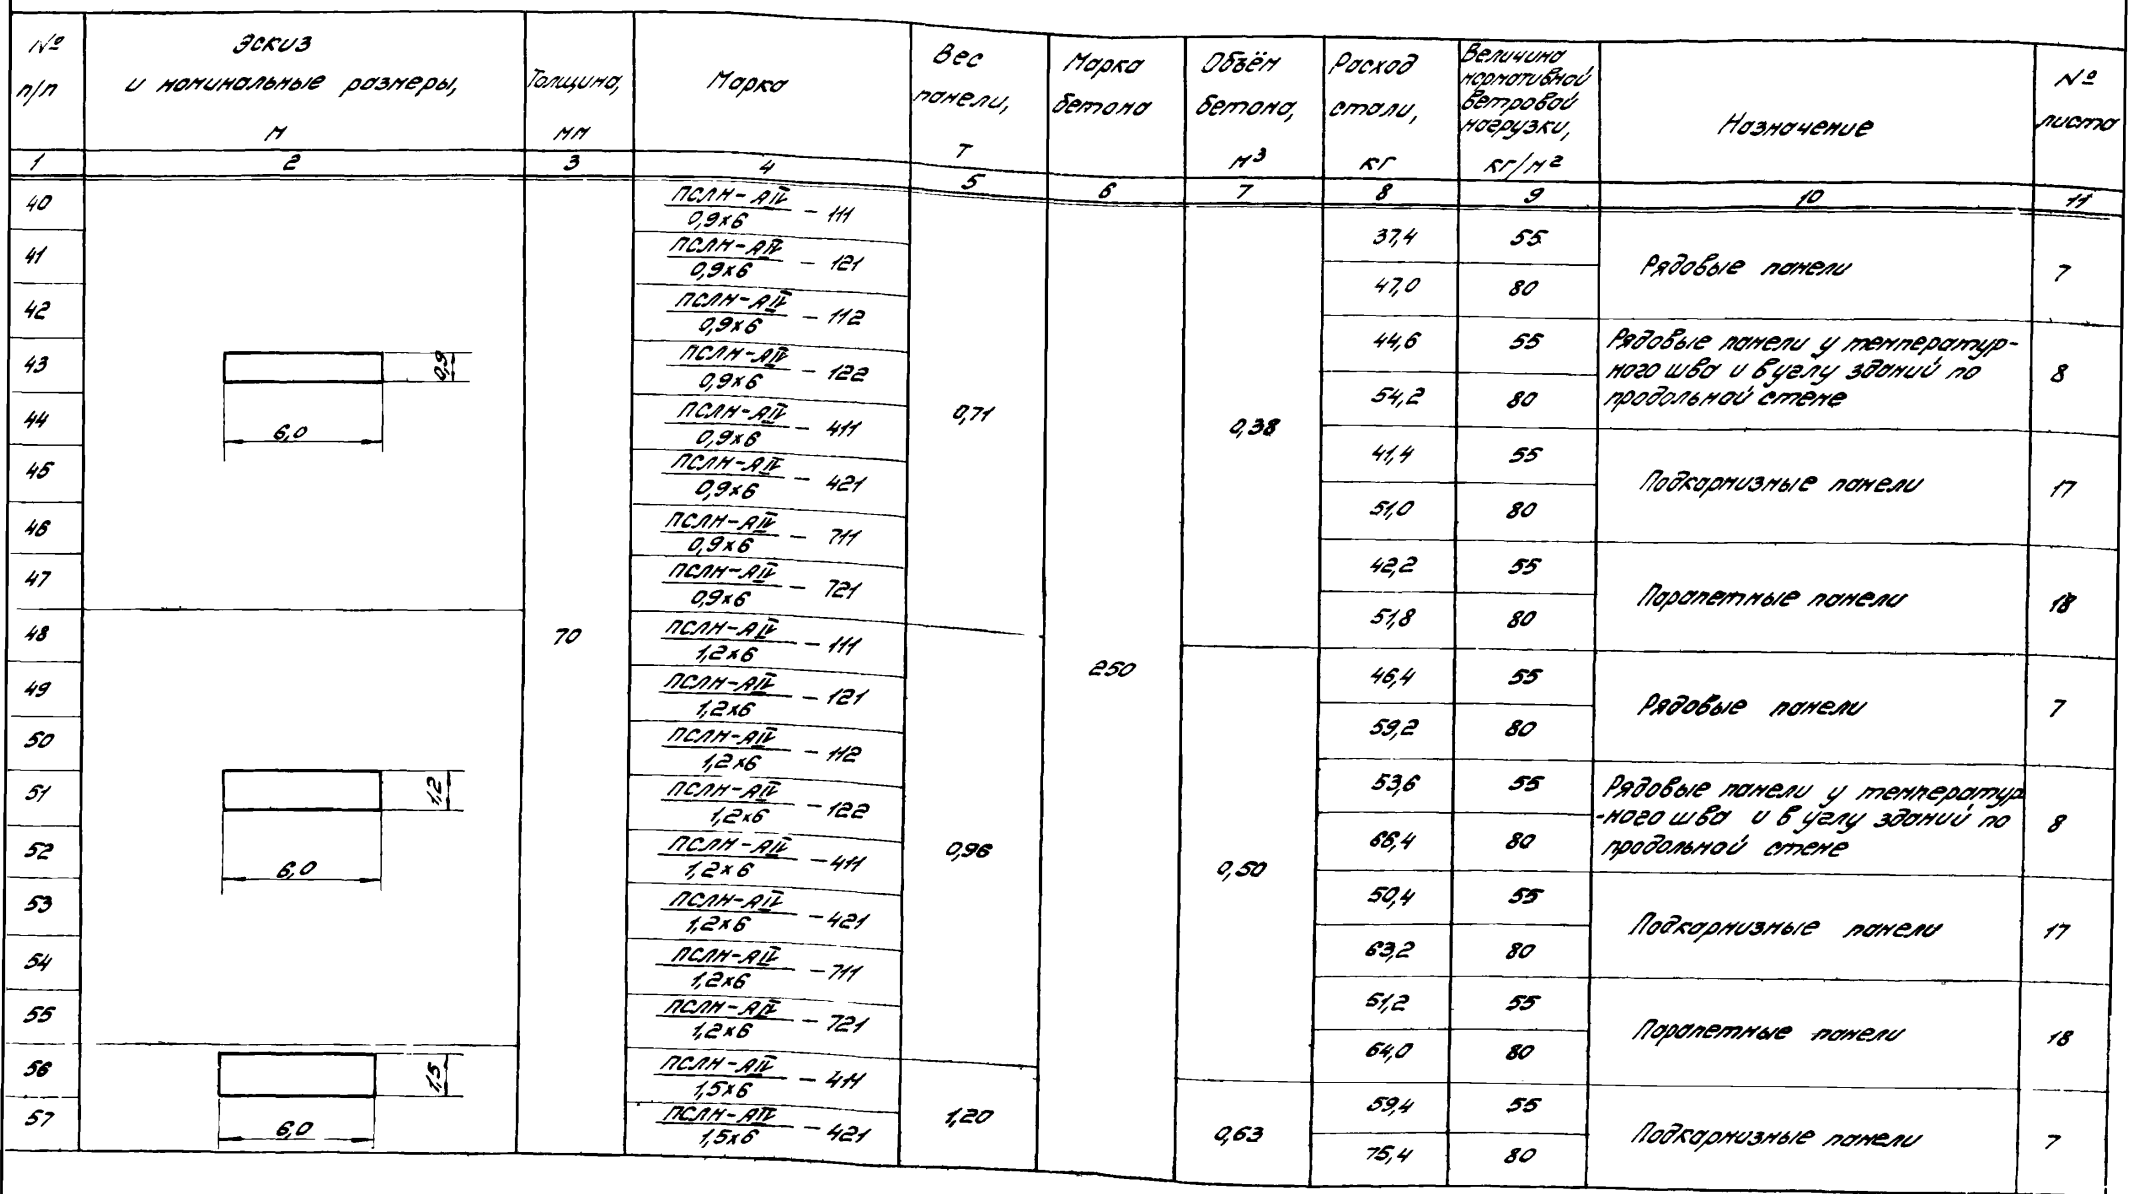 № п/п | Эскиз и номинальные размеры, м | Толщина, мм | Марка | Вес панели, т | Марка бетона | Объём бетона, м³ | Расход стали, кг | Величина нормативной ветровой нагрузки, кг/м² | Назначение | № листа
1 | 2 | 3 | 4 | 5 | 6 | 7 | 8 | 9 | 10 | 11
40 | 6,0 0,9 | 70 | ПСЛН-АIV/0,9х6 - 111 | 0,71 | 250 | 0,38 | 37,4 | 55 | Рядовые панели | 7
41 | ПСЛН-АIV/0,9х6 - 121 | 47,0 | 80
42 | ПСЛН-АIV/0,9х6 - 112 | 44,6 | 55 | Рядовые панели у температур-
ного шва и в углу зданий по
продольной стене | 8
43 | ПСЛН-АIV/0,9х6 - 122 | 54,2 | 80
44 | ПСЛН-АIV/0,9х6 - 411 | 41,4 | 55 | Подкарнизные панели | 17
45 | ПСЛН-АIV/0,9х6 - 421 | 51,0 | 80
46 | ПСЛН-АIV/0,9х6 - 711 | 42,2 | 55 | Парапетные панели | 18
47 | ПСЛН-АIV/0,9х6 - 721 | 51,8 | 80
48 | 6,0 1,2 | ПСЛН-АIV/1,2х6 - 111 | 0,96 | 0,50 | 46,4 | 55 | Рядовые панели | 7
49 | ПСЛН-АIV/1,2х6 - 121 | 59,2 | 80
50 | ПСЛН-АIV/1,2х6 - 112 | 53,6 | 55 | Рядовые панели у температур
-ного шва и в углу зданий по
продольной стене | 8
51 | ПСЛН-АIV/1,2х6 - 122 | 66,4 | 80
52 | ПСЛН-АIV/1,2х6 - 411 | 50,4 | 55 | Подкарнизные панели | 17
53 | ПСЛН-АIV/1,2х6 - 421 | 63,2 | 80
54 | ПСЛН-АIV/1,2х6 - 711 | 51,2 | 55 | Парапетные панели | 18
55 | ПСЛН-АIV/1,2х6 - 721 | 64,0 | 80
56 | 6,0 1,5 | ПСЛН-АIV/1,5х6 - 411 | 1,20 | 0,63 | 59,4 | 55 | Подкарнизные панели | 7
57 | ПСЛН-АIV/1,5х6 - 421 | 75,4 | 80